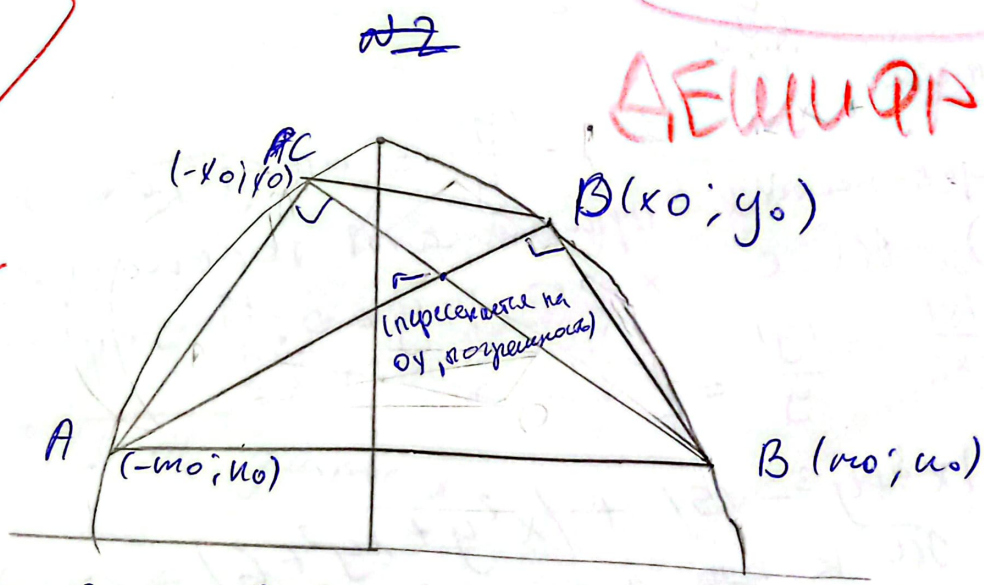 №2
ДЕШИФР
C
(-x0; y0)
B(x0; y0)
(пересекаются на
OY, погрешность)
A
(-m0; n0)
B (m0; n0)